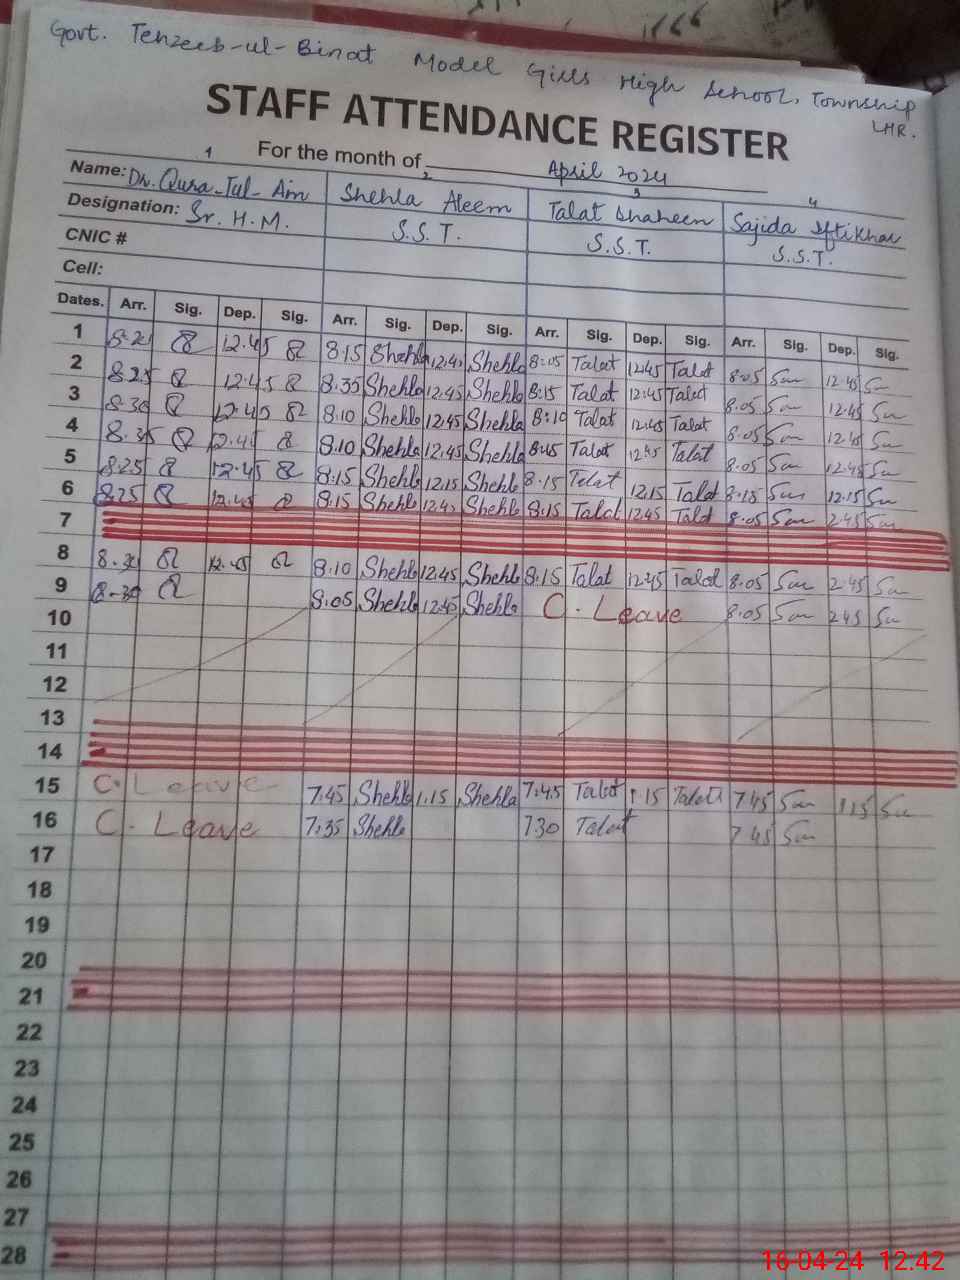 Govt. Tenzeeb-ul-Binat Model Girls High School, Township
LHR.
STAFF ATTENDANCE REGISTER
For the month of April 2024
1 2 3 4
Name: Dr. Qura-Tul-Ain Shehla Aleem Talat Shaheen Sajida Iftikhar
Designation: Sr. H.M. S.S.T. S.S.T. S.S.T.
CNIC #
Cell:
Dates. Arr. Sig. Dep. Sig. Arr. Sig. Dep. Sig. Arr. Sig. Dep. Sig. Arr. Sig. Dep. Sig.
1 12.45 8.15 Shehla 12.45 Shehla 8.05 Talat 12.45 Talat 8.05 12.45
2 8.25 12.45 8.35 Shehla 12.45 Shehla 8.15 Talat 12.45 Talat 8.05 12.45
3 8.30 12.45 8.10 Shehla 12.45 Shehla 8.10 Talat 12.45 Talat 8.05 12.45
4 8.35 12.45 8.10 Shehla 12.45 Shehla Talat 12.45 Talat 8.05 12.45
5 8.25 12.45 8.15 Shehla 12.15 Shehla 8.15 Talat 12.15 Talat 8.15 12.15
6 8.25 12.45 8.15 Shehla 12.45 Shehla 8.15 Talat 12.45 Talat 8.05 2.45
7
8 12.45 8.10 Shehla 12.45 Shehla 8.15 Talat 12.45 Talat 8.05 2.45
9 8.30 8.05 Shehla 12.45 Shehla C. Leave 8.05 2.45
10
11
12
13
14
15 C. Leave 7.45 Shehla 1.15 Shehla 7.45 Talat 1.15 Talat 7.45 1.15
16 C. Leave 7.35 Shehla 7.30 Talat 7.45
17
18
19
20
21
22
23
24
25
26
27
28
16-04-24 12:42